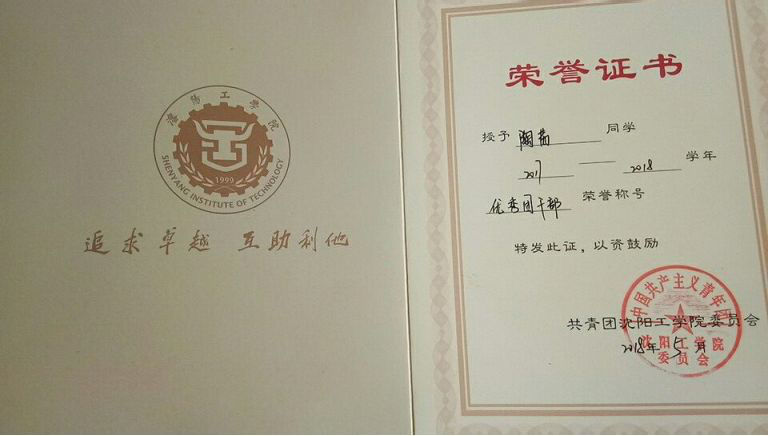 瀋陽工學院
SHENYANG INSTITUTE OF TECHNOLOGY
1999
追求卓越 互助利他
荣誉证书
授予 同学
2017 — 2018 学年
优秀团干部 荣誉称号
特发此证，以资鼓励
共青团沈阳工学院委员会
2018年5月
中国共产主义青年团
沈阳工学院
委员会